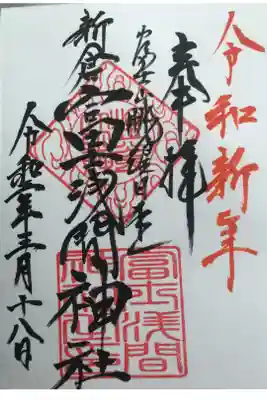 令和新年
奉拝
眺望日本一
新倉富士浅間神社
令和
年
月十八日
冨士浅間
神社